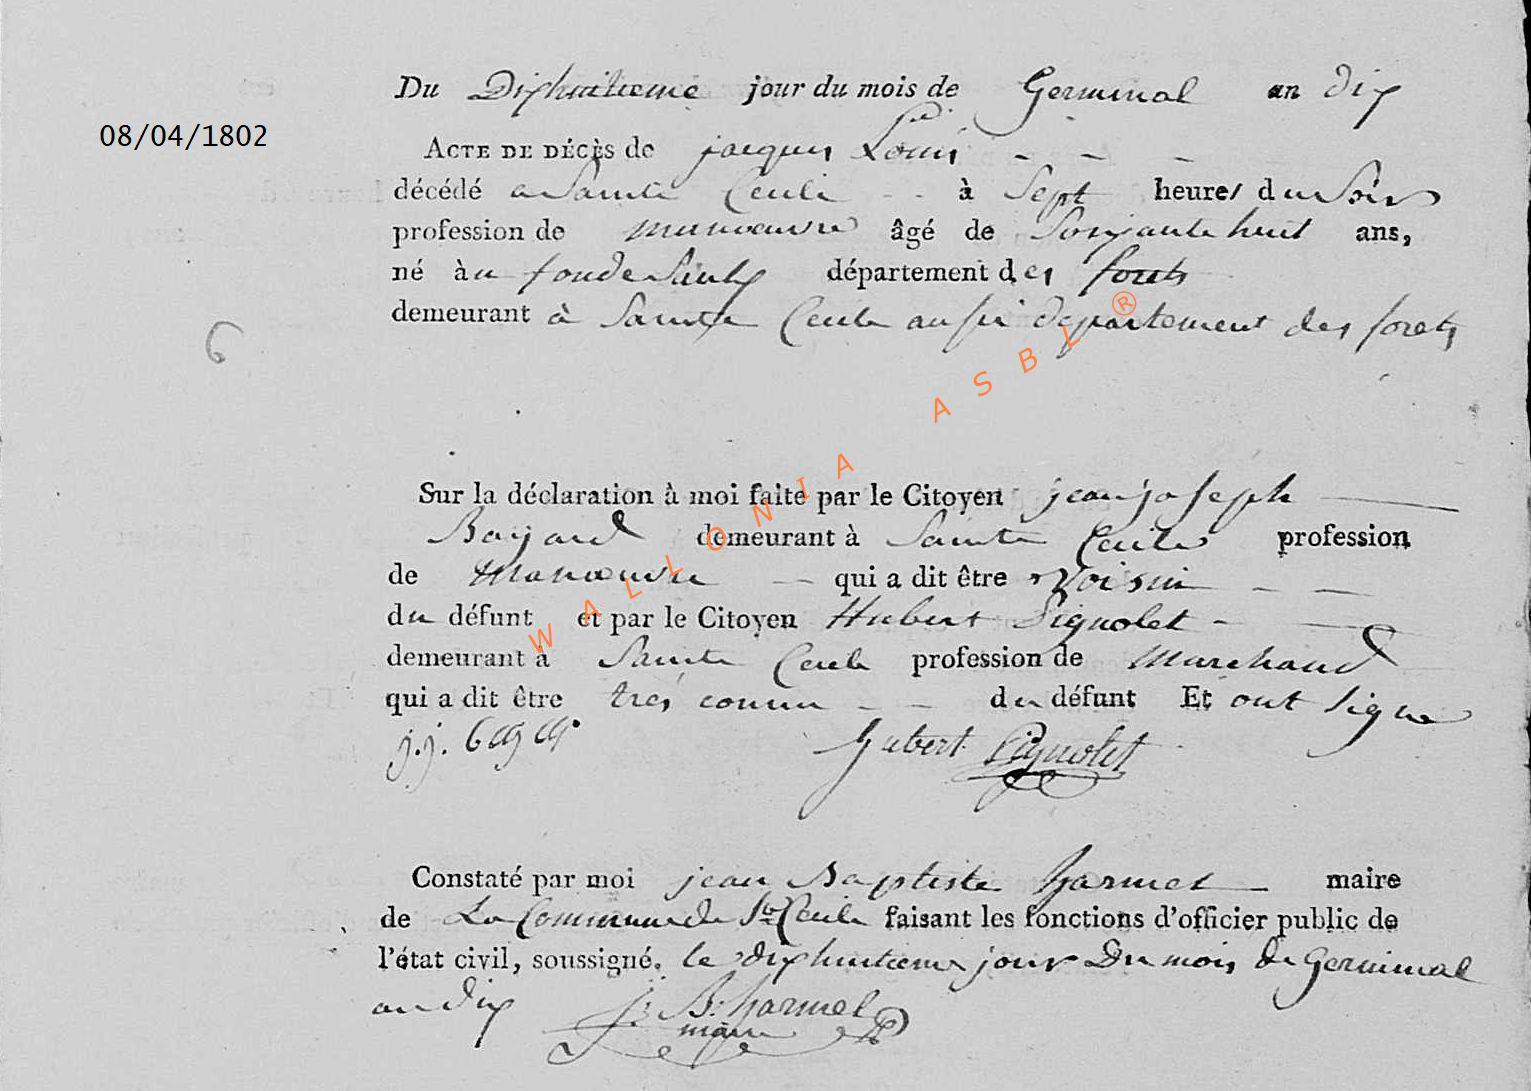 Du Dixhuitieme jour du mois de Germinal an dix
08/04/1802
ACTE DE DÉCÈS de jacques Louis
décédé a Sainte Cecile à Sept heures du Soir
profession de manoeuvre âgé de Soixante huit ans,
né à département des forets
demeurant à Sainte Cecile aussi departement des forets
6
Sur la déclaration à moi faite par le Citoyen jean joseph
Bayard demeurant à Sainte Cecile profession
de manoeuvre qui a dit être Voisin
du défunt et par le Citoyen Hubert Pignolet
demeurant à Sainte Cecile profession de Marchand
qui a dit être très connu du défunt Et ont signe
j.j. Hubert Pignolet
Constaté par moi jean Baptiste harmel maire
de La Commune de Ste Cecile faisant les fonctions d'officier public de
l'état civil, soussigné, le dixhuitieme jour Du mois de Germinal
an dix J: B: harmel
maire
WALLONIA ASBL ®